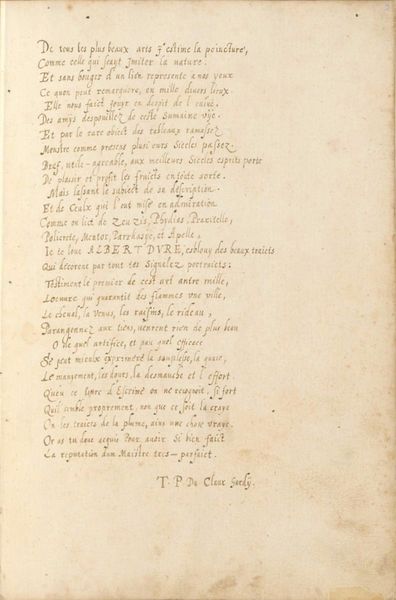 De tous les plus beaux arts j'estime la peincture,
Comme celle qui sçayt Jmiter la nature.
Et sans bouger d'un lieu represente a nos yeux
Ce quon peut remarquer, en mille divers lieux.
Elle nous faict jouyr en despit de l'envie,
Des amys despouillez de ceste humaine vye.
Et par le rare obiect des tableaux ramassez
Monstre comme presens plusieurs Siecles passez.
Bref, utile-agreable, aux meilleurs esprits porte
De plaisir et profit les fruicts en toute sorte.
Mais laissant le subiect de sa description.
Et de Ceulx qui l'ont mise en admiration
Comme on lict de Zeuzis, Phydias, Praxitelle,
Policrete, Mentor, Parrhasye, et Apelle,
Je te loue ALBERT DVRE, esblouy des beaux traicts
Qui decorent par tout tes Signalez portraicts:
Tesmoing le premier de cest art entre mille,
qui garentit des flammes une ville,
Le cheval, la Venus, les raisins, le rideau,
Parangonnez aux tiens, n'eurent rien de plus beau
O de quel artifice, et par quel efficace
Se peut mieulx exprimer la souplesse, la grace,
Le mangement, les tours, la desmarche et l'effort.
Qu'en ce livre d'Escrime on ne recognoit, si fort
Quil semble proprement, non que ce soit la craye
On les traicts de la plume, ains une chose vraye.
Or as tu donc acquis Pour avoir Si bien faict
La reputation d'un Maistre tres-parfaict.
T. P. Du Claux